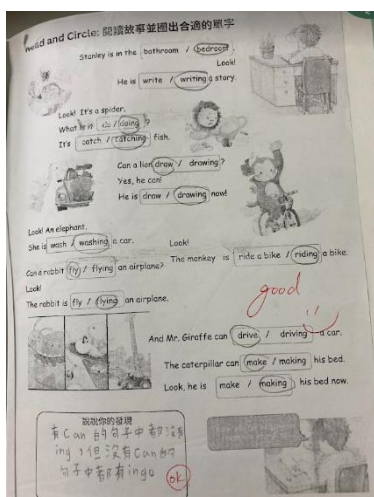 Read and Circle: 閱讀故事並圈出合適的單字
Stanley is in the bathroom / bedroom.
Look!
He is write / writing a story.
Look! It's a spider.
What he is do / doing ?
It's catch / catching fish.
Can a lion draw / drawing?
Yes, he can!
He is draw / drawing now!
Look! An elephant.
She is wash / washing a car.
Look!
The monkey is ride a bike / riding a bike.
Can a rabbit fly / flying an airplane?
Look!
The rabbit is fly / flying an airplane.
good
And Mr. Giraffe can drive / driving a car.
The caterpillar can make / making his bed.
Look, he is make / making his bed now.
說說你的發現
有Can的句子中都沒有
ing，但沒有Can的
句子中都有ing。
ok